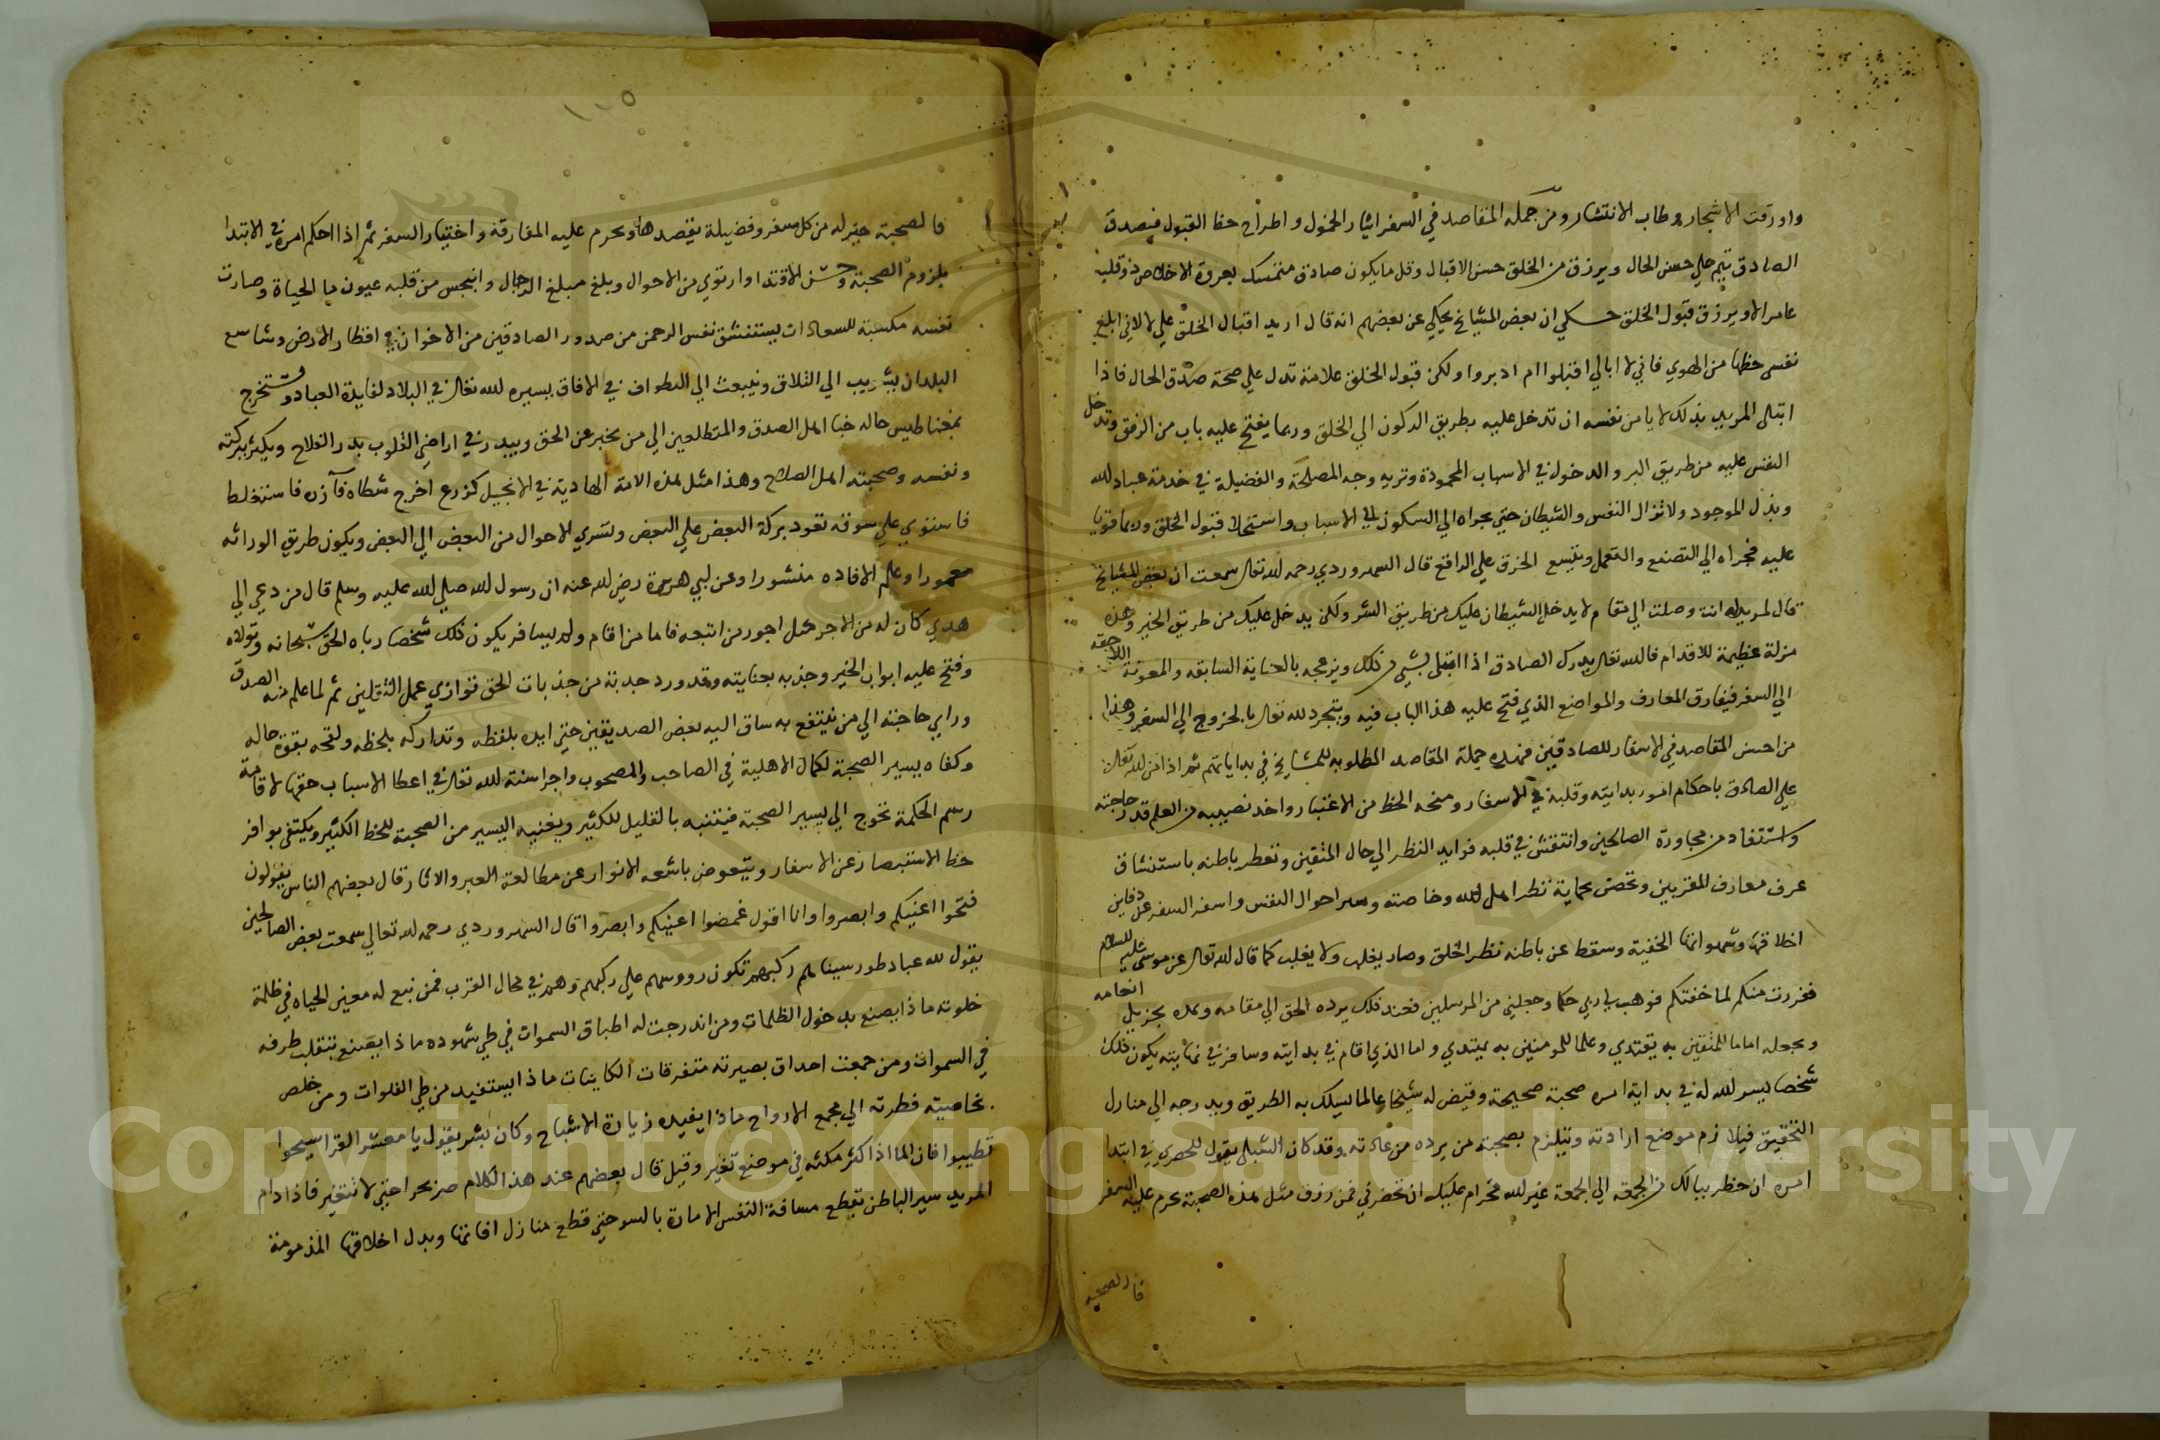 واورقت الاشجار وطاب الانتشار ومن جملة المقاصد في السفر ايثار الخمول واطراح حظ القبول فيصدق
الصادق تيم علي حسن الحال ويرزق من الخلق حسن الاقبال وقل ما يكون صادق متمسك بعروة الاخلاص ذو قلب
عامر الا ويرزق قبول الخلق حكي ان بعض المشايخ يحكي عن بعضهم انه قال اريد اقبال الخلق علي لا لاني ابلغ
نفسي حظها من الهوي فاني لا ابالي اقبلوا ام ادبروا ولكن قبول الخلق علامة تدل علي صحة صدق الحال فاذا
ابتلي المريد بذلك لا يامن نفسه ان تدخل عليه بطريق الركون الي الخلق وربما يفتح عليه باب من الرفق وتدخل
النفس عليه من طريق البر والدخول في الاسباب المحمودة وتريه وجه المصلحة والفضيلة في خدمة عباد لله
وبذل الموجود ولا تزال النفس والشيطان حتي يجراه الي السكون الي الاسباب واستحلا قبول الخلق وربما قويا
عليه فجراه الي التصنع والتعمل ويتسع الخرق علي الراقع قال السهروردي رحمه لله تعالي سمعت ان بعض المشايخ
قال لمريد له انت وصلت الي مقام لا يدخل الشيطان عليك من طريق الشر ولكن يدخل عليك من طريق الخير وهذه
مزلة عظيمة للاقدام فالله تعالي يدرك الصادق اذا ابتلي بشي من ذلك ويزعجه بالعناية السابقه والمعونة اللاحقه
الي السفر فيفارق المعارف والمواضع الذي فتح عليه هذا الباب فيه ويتجرد لله تعالي بالخروج الي السفر وهذا
من احسن المقاصد في الاسفار للصادقين فهذه جملة المقاصد المطلوبه للمشايخ في بداياتهم ثم اذا من لله تعالي
علي الصادق باحكام امور بدايته وقلبه في الاسفار ومنحه الحظ من الاعتبار واخذ نصيبه من العلم قدر حاجته
واستفاد من مجاورة الصالحين وانتقش في قلبه فوايد النظر الي حال المتقين وتعطر باطنه باستنشاق
عرف معارف المقربين وتحصن بحماية نظر اهل لله وخاصته وسبر احوال النفس واسفر السفر عن دفاين
اخلاقها وشهواتها الخفية وسقط عن باطنه نظر الخلق وصار يغلب ولا يغلب كما قال لله تعالي عن موسى عليه السلام
ففررت منكم لما خفتكم فوهب لي ربي حكما وجعلني من المرسلين فعند ذلك يرده الحق الي مقامه ويمده بجزيل انعامه
ويجعله اماما للمتقين به يقتدي وعلما للمومنين به يهتدي واما الذي اقام في بدايته وسافر في نهايته يكون ذلك
شخصا يسر لله له في بداية امره صحبة صحيحة وقيض له شيخا عالما يسلك به الطريق ويدرجه الي منازل
التحقيق فيلازم موضع ارادته ويلتزم بصحبة من يرده من عادته وقد كان الشبلي يقول للحصري في ابتدا
امره ان خطر ببالك من الجمعه الي الجمعة غير لله فحرام عليك ان تحضرني فمن رزق مثل هذه الصحبة يحرم عليه السفر
فالصحبه
١٠٥
فالصحبة خير له من كل سفر وفضيلة يقصدها ويحرم عليه المفارقة واختيار السفر ثم اذا احكم امره في الابتدا
بلزوم الصحبة وحسن الاقتدا وارتوي من الاحوال وبلغ مبلغ الرجال وانبجس من قلبه عيون ما الحياة وصارت
نفسه مكسبة للسعادات يستنشق نفس الرحمن من صدور الصادقين من الاخوان في اقطار الارض وشاسع
البلدان يشريب الي التلاق وينبعث الي التطواف في الافاق يسيره لله تعالي في البلاد لفايدة العباد ويستخرج
بمغناطيس حاله خبا اهل الصدق والمتطلعين الي من يخبر عن الحق ويبذر في اراضي القلوب بذر الفلاح ويكثر ببركته
ونفسه وصحبته اهل الصلاح وهذا مثل هذه الامة الهادية في الانجيل كزرع اخرج شطاه فآزره فاستغلظ
فاستوي علي سوقه تعود بركة البعض علي البعض وتسري الاحوال من البعض الي البعض ويكون طريق الوراثه
معمورا وعلم الافاده منشورا وعن ابي هريرة رضي لله عنه ان رسول لله صلي لله عليه وسلم قال من دعي الي
هدي كان له من الاجر مثل اجور من اتبعه فاما من اقام ولم يسافر يكون ذلك شخصا رباه الحق سبحانه وتولاه
وفتح عليه ابواب الخير وجذبه بعنايته وقد ورد جذبة من جذبات الحق توازي عمل الثقلين ثم لما علم منه الصدق
وراي حاجته الي من ينتفع به ساق اليه بعض الصديقين حتي ايده بلفظه وتداركه بلحظه ولقحه بقوة حاله
وكفاه يسير الصحبة لكمال الاهلية في الصاحب والمصحوب واجرا سنة لله تعالي في اعطا الاسباب حقها لاقامة
رسم الحكمة تحوج الي يسير الصحبة فيتنبه بالقليل للكثير ويغنيه اليسير من الصحبة للحظ الكثير ويكتفي بوافر
حظ الاستبصار عن الاسفار ويتعوض باشعه الانوار عن مطالعة العبر والاثار قال بعضهم الناس يقولون
فتحوا اعينكم وابصروا وانا اقول غمضوا اعينكم وابصروا قال السهروردي رحمه لله تعالي سمعت بعض الصالحين
يقول لله عباد طور سيناهم ركبهم تكون رووسهم علي ركبهم وهم في محال القرب فمن نبع له معين الحياه في ظلمة
خلوته ماذا يصنع بدخول الظلمات ومن اندرجت له اطباق السموات في طي شهوده ماذا يصنع بتقلب طرفه
في السموات ومن جمعت احداق بصيرته متفرقات الكاينات ماذا يستفيد من طي الفلوات ومن خلص
بخاصية فطرته الي مجمع الارواح ماذا يفيده زيارة الاشباح وكان بشر يقول يا معشر القرا سيحوا
تطيبوا فان الما اذا كثر مكثه في موضع تغير وقيل قال بعضهم عند هذا الكلام صر بحرا حتي لا تتغير فاذا دام
المريد سير الباطن يقطع مسافة النفس الامارة بالسو حتي قطع منازل افاتها وبدل اخلاقها المذمومة
Copyright © King Saud University